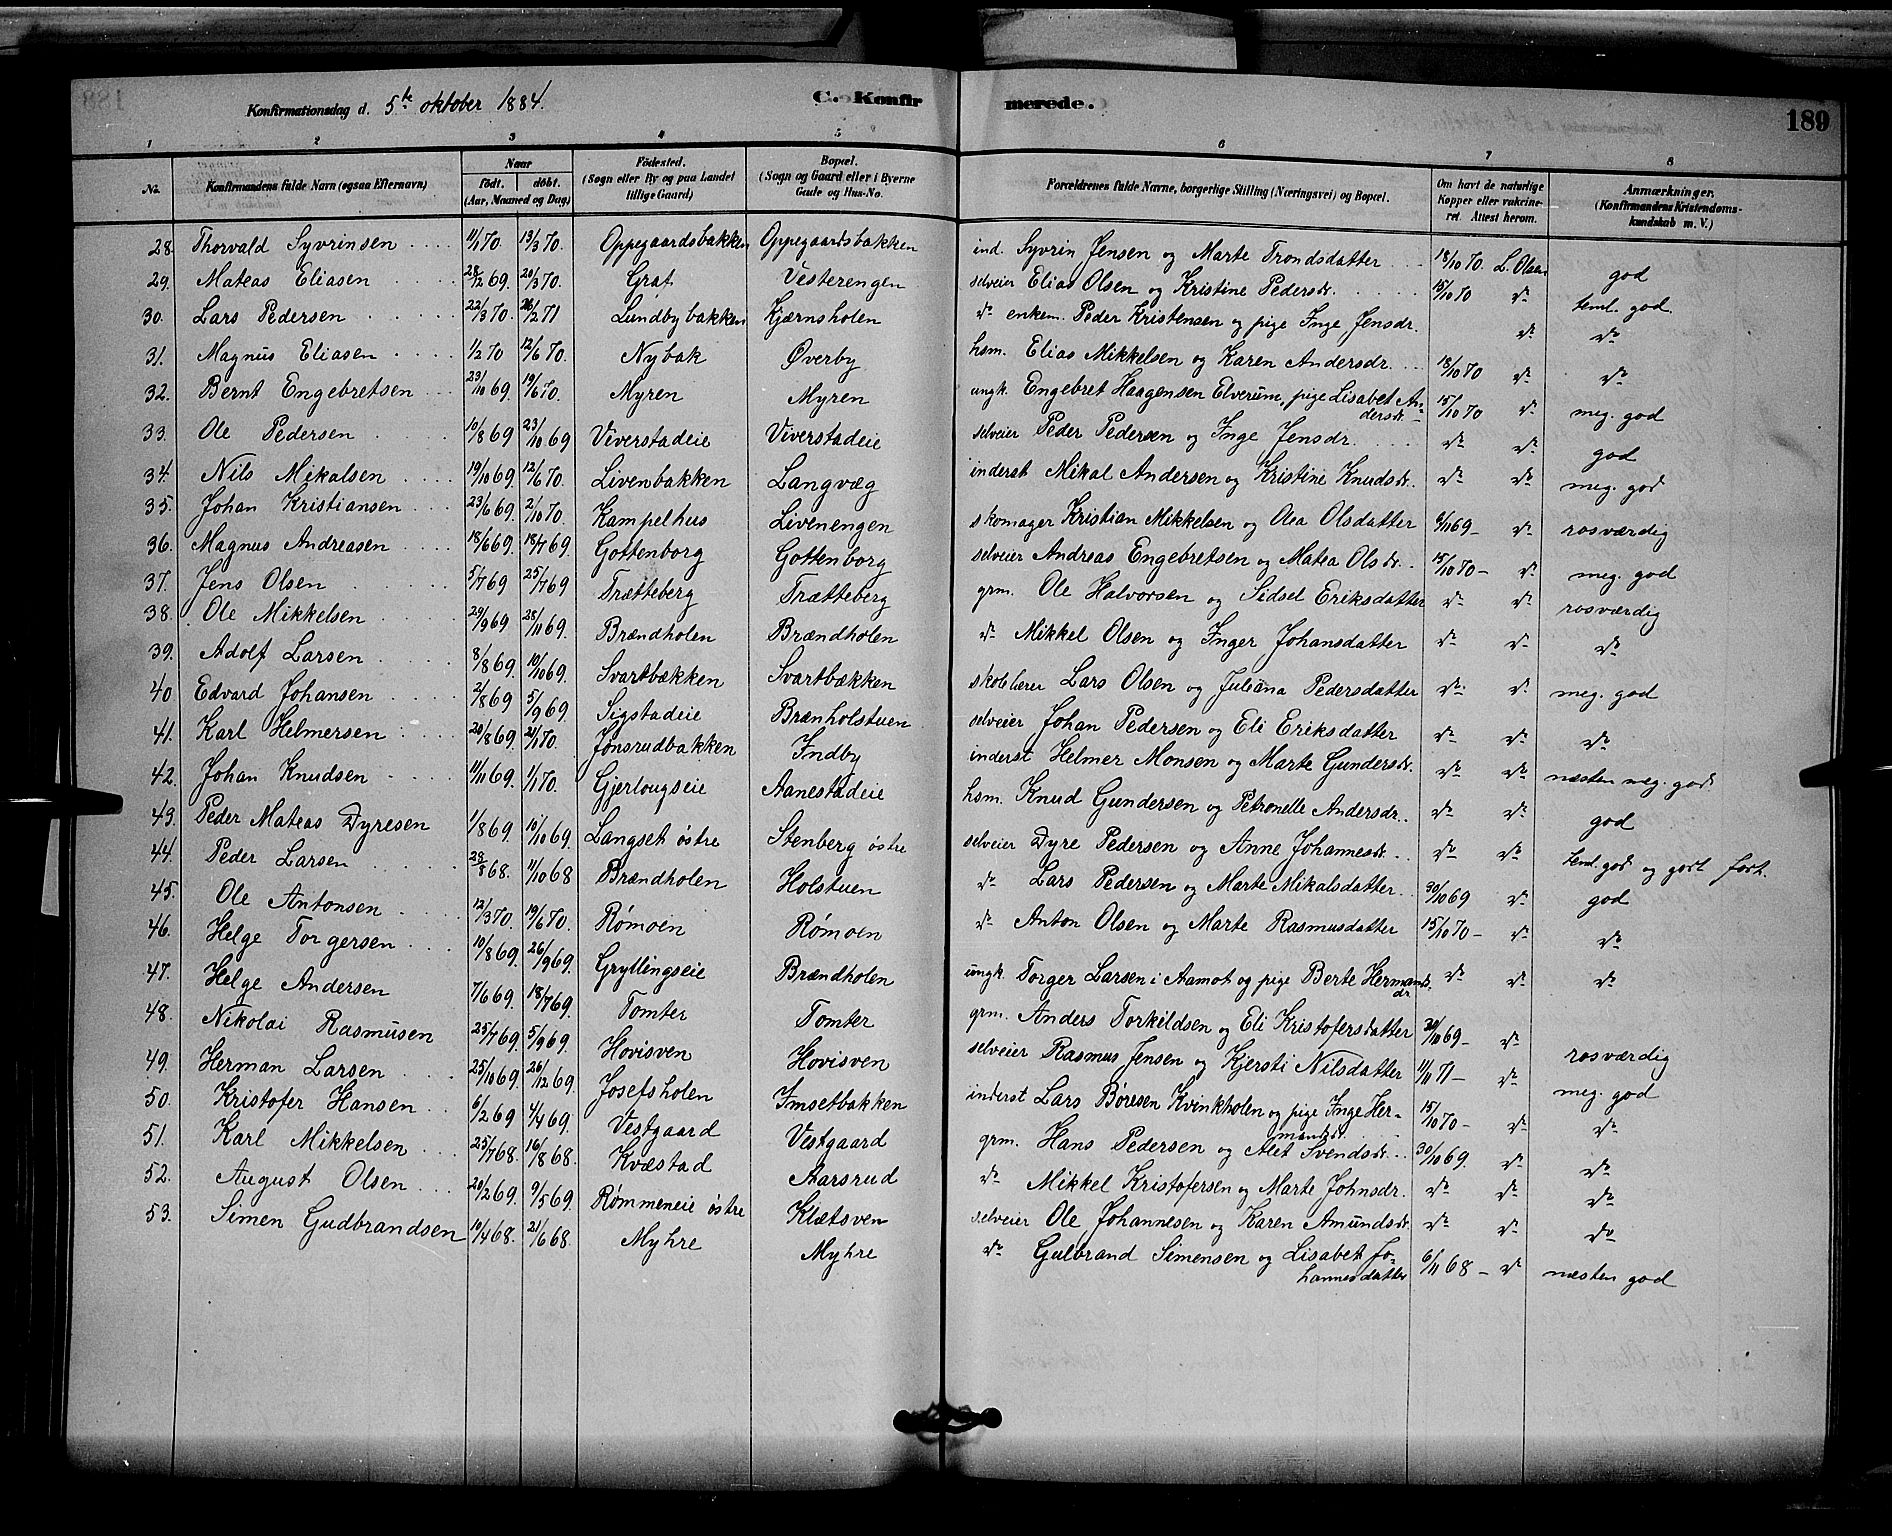 Konfirmationsdag d. 5te oktober 1884.
C. Konfirmerede.
189
1 2 3 4 5 6 7 8
No. | Konfirmandens fulde Navn (ogsaa Efternavn) | Naar födt. döbt. (Aar, Maaned og Dag) | Födested. (Sogn eller By og paa Landet tillige Gaard) | Bopæl. (Sogn og Gaard eller i Byerne Gade og Hus-No. | Forældrenes fulde Navne, borgerlige Stilling (Næringsvei) og Bopæl. | Om havt de naturlige Kopper eller vakcineret. Attest herom. | Anmærkninger. (Konfirmandens Kristendomskundskab m. V.)
28. Thorvald Syvrinsen 11/1 70. 13/3 70. Oppegaardsbakken Oppegaardsbakken ind. Syvrin Jensen og Marte Trondsdatter 18/10 70. L. Olsen god
29. Mateas Eliasen 28/12 69. 20/3 70. Graf Vesterengen selveier Elias Olsen og Kristine Pedersdr. 15/10 70 do teml. god.
30. Lars Pedersen 22/3 70. 26/2 71 Lundbybakken Kjærnsholen do enkem. Peder Kristensen og pige Inge Jensdr. do do
31. Magnus Eliasen 1/2 70 12/6 70. Nybak Øverby hsm. Elias Mikkelsen og Karen Andersdr. 18/10 70 do do
32. Bernt Engebretsen 23/10 69. 19/6 70. Myren Myren ungk. Engebret Haagensen Elverum, pige Lisabet Andersdr. 15/10 70 do meg. god
33. Ole Pedersen 10/8 69 23/10 69 Viverstadeie Viverstadeie selveier Peder Pedersen og Inge Jensdr. do do god
34. Nils Mikalsen 19/10 69. 12/6 70. Livenbakken Langvæg inderst Mikal Andersen og Kristine Knudsdr. do do meg. god
35. Johan Kristiansen 23/6 69. 2/10 70. Kampelhus Livenengen skomager Kristian Mikkelsen og Olea Olsdatter 6/11 69 - do rosværdig
36. Magnus Andreasen 18/6 69. 18/7 69. Gottenborg Gottenborg selveier Andreas Engebretsen og Matea Olsdr. 15/10 70 - do meg. god
37. Jens Olsen 5/7 69 25/7 69 Trætteberg Trætteberg grm. Ole Halvorsen og Sidsel Eriksdatter do do rosværdig
38. Ole Mikkelsen 29/9 69 28/11 69. Brændholen Brændholen do Mikkel Olsen og Inger Johansdatter do do do
39. Adolf Larsen 8/8 69. 10/10 69. Svartbækken Svartbækken skolelærer Lars Olsen og Juliana Pedersdatter do do meg. god
40 Edvard Johansen 2/8 69 5/9 69. Sigstadeie Brænholstuen selveier Johan Pedersen og Eli Eriksdatter do do do
41. Karl Helmersen 20/8 69. 2/1 70. Jönsrudbakken Indby inderst Helmer Monsen og Marte Gundersdr. do do næsten meg. god
42. Johan Knudsen 11/11 69. 1/1 70. Gjerlougseie Aanestadeie hsm. Knud Gundersen og Petronelle Andersdr. do do god
43. Peder Mateas Dyresen 1/8 69. 10/10 69. Langset östre Stenberg östre selveier Dyre Pedersen og Anne Johannesdr. do do teml. god og godt fort.
44. Peder Larsen 28/8 68. 11/10 68 Brændholen Holstuen do Lars Pedersen og Marte Mikalsdatter 30/10 69 do god
45. Ole Antonsen 12/3 70. 19/6 70. Rømoen Rømoen do Anton Olsen og Marte Rasmusdatter 15/10 70 - do do
46. Helge Torgersen 10/8 69. 26/9 69. Gryllingseie Brændholen ungk. Torger Larsen i Aamot og pige Berte Hermansdr. do do do
47. Helge Andersen 7/6 69. 18/7 69. Tomter Tomter grm. Anders Torkildsen og Eli Kristofersdatter 30/10 69 - do
48. Nikolai Rasmusen 25/7 69. 5/9 69. Hovisven Hovisven selveier Rasmus Jensen og Kjersti Nilsdatter 11/11 71 - do rosværdig
49. Herman Larsen 25/10 69. 26/12 69. Josefsholen Imsetbakken inderst Lars Børesen Kvinkholen og pige Inge Hermansdr. 15/10 70 - do meg. god
50. Kristofer Hansen 6/2 69 4/4 69. Vestgaard Vestgaard grm. Hans Pedersen og Alet Svendsdr. 30/10 69. do do
51. Karl Mikkelsen 25/7 68. 16/8 68. Kvæstad Aarsrud do Mikkel Kristofersen og Marte Johnsdr. do do do
52. August Olsen 20/2 69. 9/5 69. Rømmeneie östre Klætsven selveier Ole Johannesen og Karen Amundsdr. do do do
53. Simen Gudbrandsen 10/4 68. 21/6 68. Myhre Myhre do Gulbrand Simensen og Lisabet Johannesdatter 6/11 68 - do næsten god